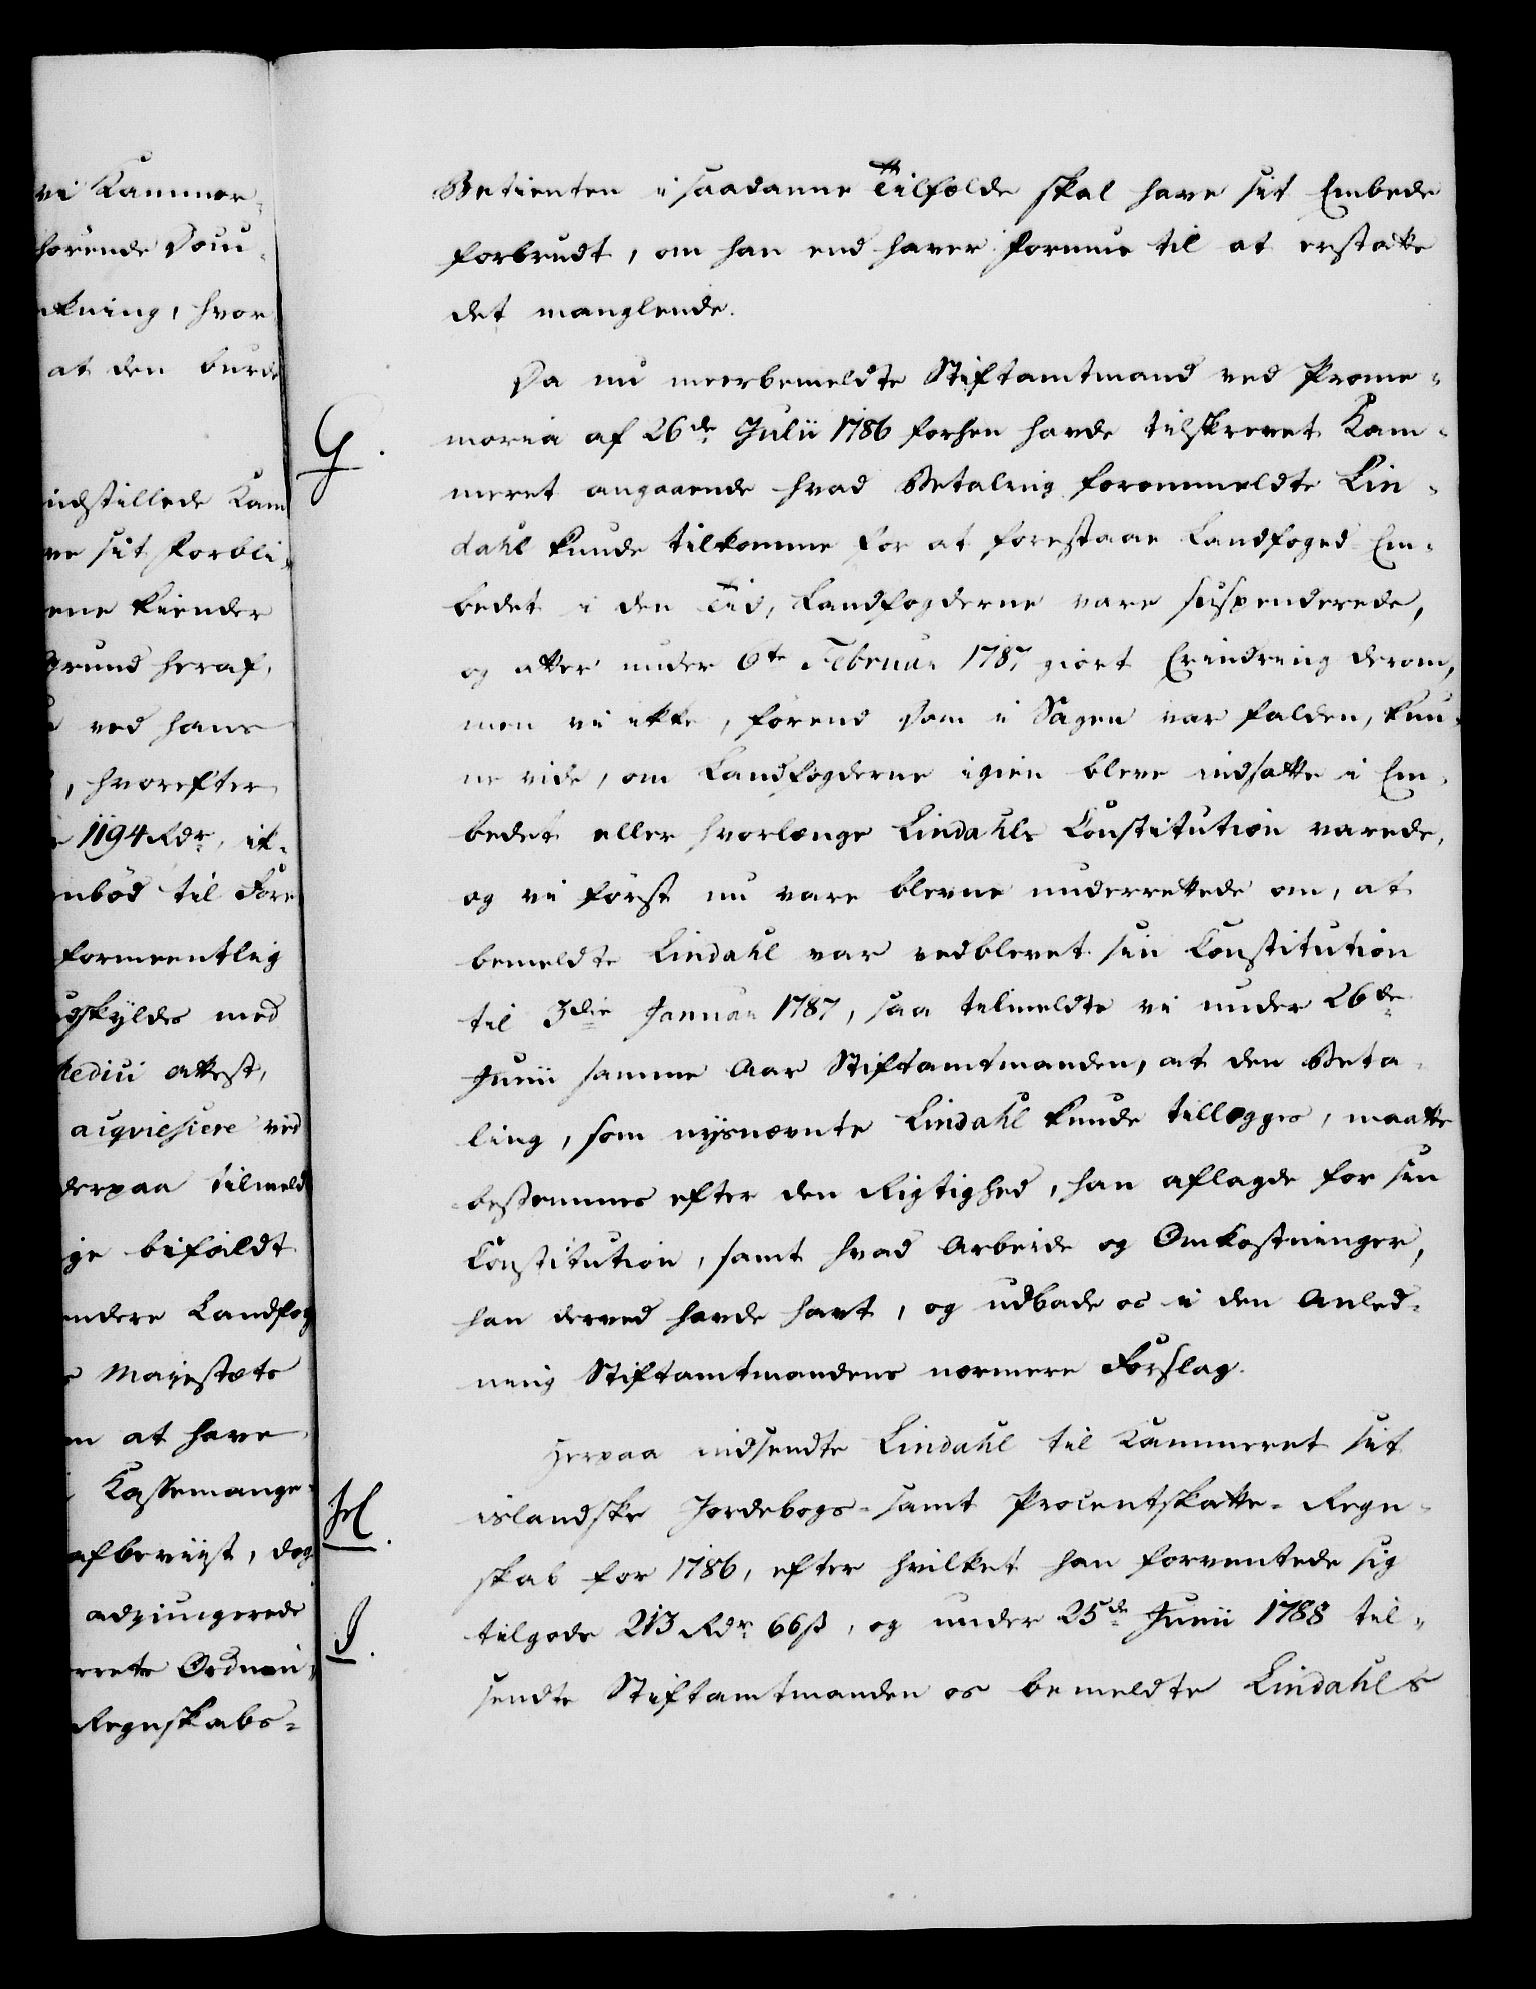 vi Kammer-
hørende Dom-
kning, hvor
at den burde
indstillede Kam
ve sit forbli-
ene kiender
Grund heraf,
ved hans
, hvorefter
1194 Rdr, ik-
nbød til Fore
formeentlig
dskyldes med
Medici Attest,
acqviescere ved
derpaa tilmeld
ge bifaldt
endere Landfog
Majestæts
n at have
Kassemange-
afbeviist, dog
adjungerede
rrets Ordnin-
Regnskabs-
Betienten i saadanne Tilfælde skal have sit Embede
forbrudt, om han end haver Formue til at erstatte
det manglende.
Da nu meerbemeldte Stiftamtmand ved Prome-
G.
moria af 26de Julii 1786 forhen havde tilskrevet Kam-
meret angaaende hvad Betaling forommeldte Lin-
dahl kunde tilkomme for at forestaae Landfoged Em-
bedet i den Tid, Landfogderne vare suspenderede,
og atter under 6te Februar 1787 giort Erindring derom,
men vi ikke, førend Dom i Sagen var falden, kun-
ne vide, om Landfogderne igien bleve indsatte i Em-
bedet eller hvorlænge Lindahls Constitution varede,
og vi først nu vare blevne underrettede om, at
bemeldte Lindahl var vedblevet sin Constitution
til 3die Januar 1787, saa tilmeldte vi under 26de
Junii samme Aar Stiftamtmanden, at den Beta-
ling, som nysnævnte Lindahl kunde tillægges, maatte
bestemmes efter den Rigtighed, han aflagde for sin
Constitution, samt hvad Arbeide og Omkostninger,
han derved havde havt, og udbade os i den Anled-
ning Stiftamtmandens nærmere Forslag.
Herpaa indsendte Lindahl til Kammeret sit
H.
islandske Jordebogs- samt Procentskatte-Regn-
skab for 1786, efter hvilket han forventede sig
I.
tilgode 213 Rdr 66 ß, og under 25de Junii 1788 til-
sendte Stiftamtmanden os bemeldte Lindahls